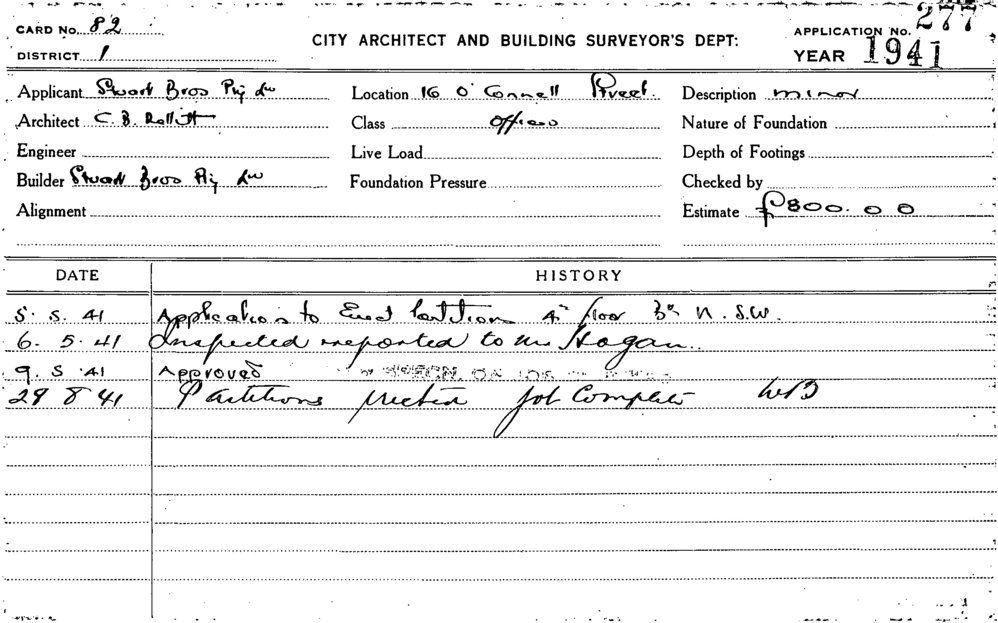 CARD No. 82
DISTRICT 1
CITY ARCHITECT AND BUILDING SURVEYOR'S DEPT:
APPLICATION No. 277
YEAR 1941
Applicant Stuart Bros Pty Ltd
Architect C. B.
Engineer
Builder Stuart Bros Pty Ltd
Alignment
Location 16 O'Connell Street.
Class Offices
Live Load
Foundation Pressure
Description minor
Nature of Foundation
Depth of Footings
Checked by
Estimate £800. 0 0
DATE HISTORY
5. 5. 41 Application to Erect Partitions 4th floor Bk N.S.W.
6. 5. 41 Inspected & reported to Mr Hogan.
9. 5. 41 Approved
29 8 41 Partitions erected Job Complete WB